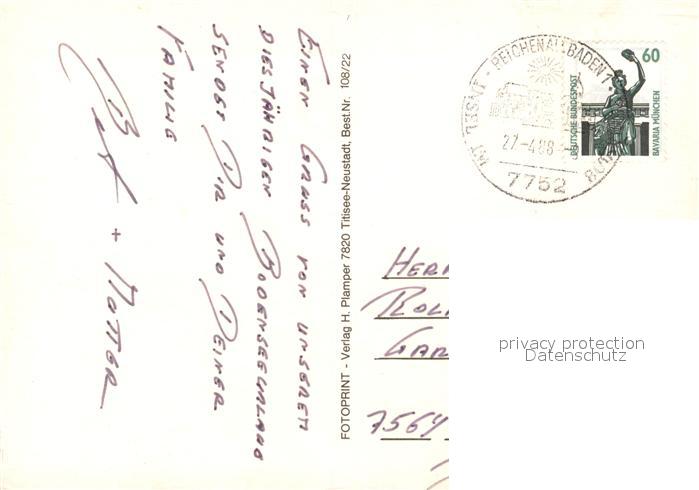 EINEN GRUSS VON UNSEREM
DIESJÄHRIGEN BODENSEEURLAUB
SENDET DIR UND DEINER
FAMILIE
+ MUTTER
FOTOPRINT - Verlag H. Plamper 7820 Titisee-Neustadt, Best.Nr. 108/22
REICHENAU, BADEN 1
INSEL IM
27.-4.88
7752
60
DEUTSCHE BUNDESPOST
BAVARIA MÜNCHEN
HERR
7564
privacy protection
Datenschutz